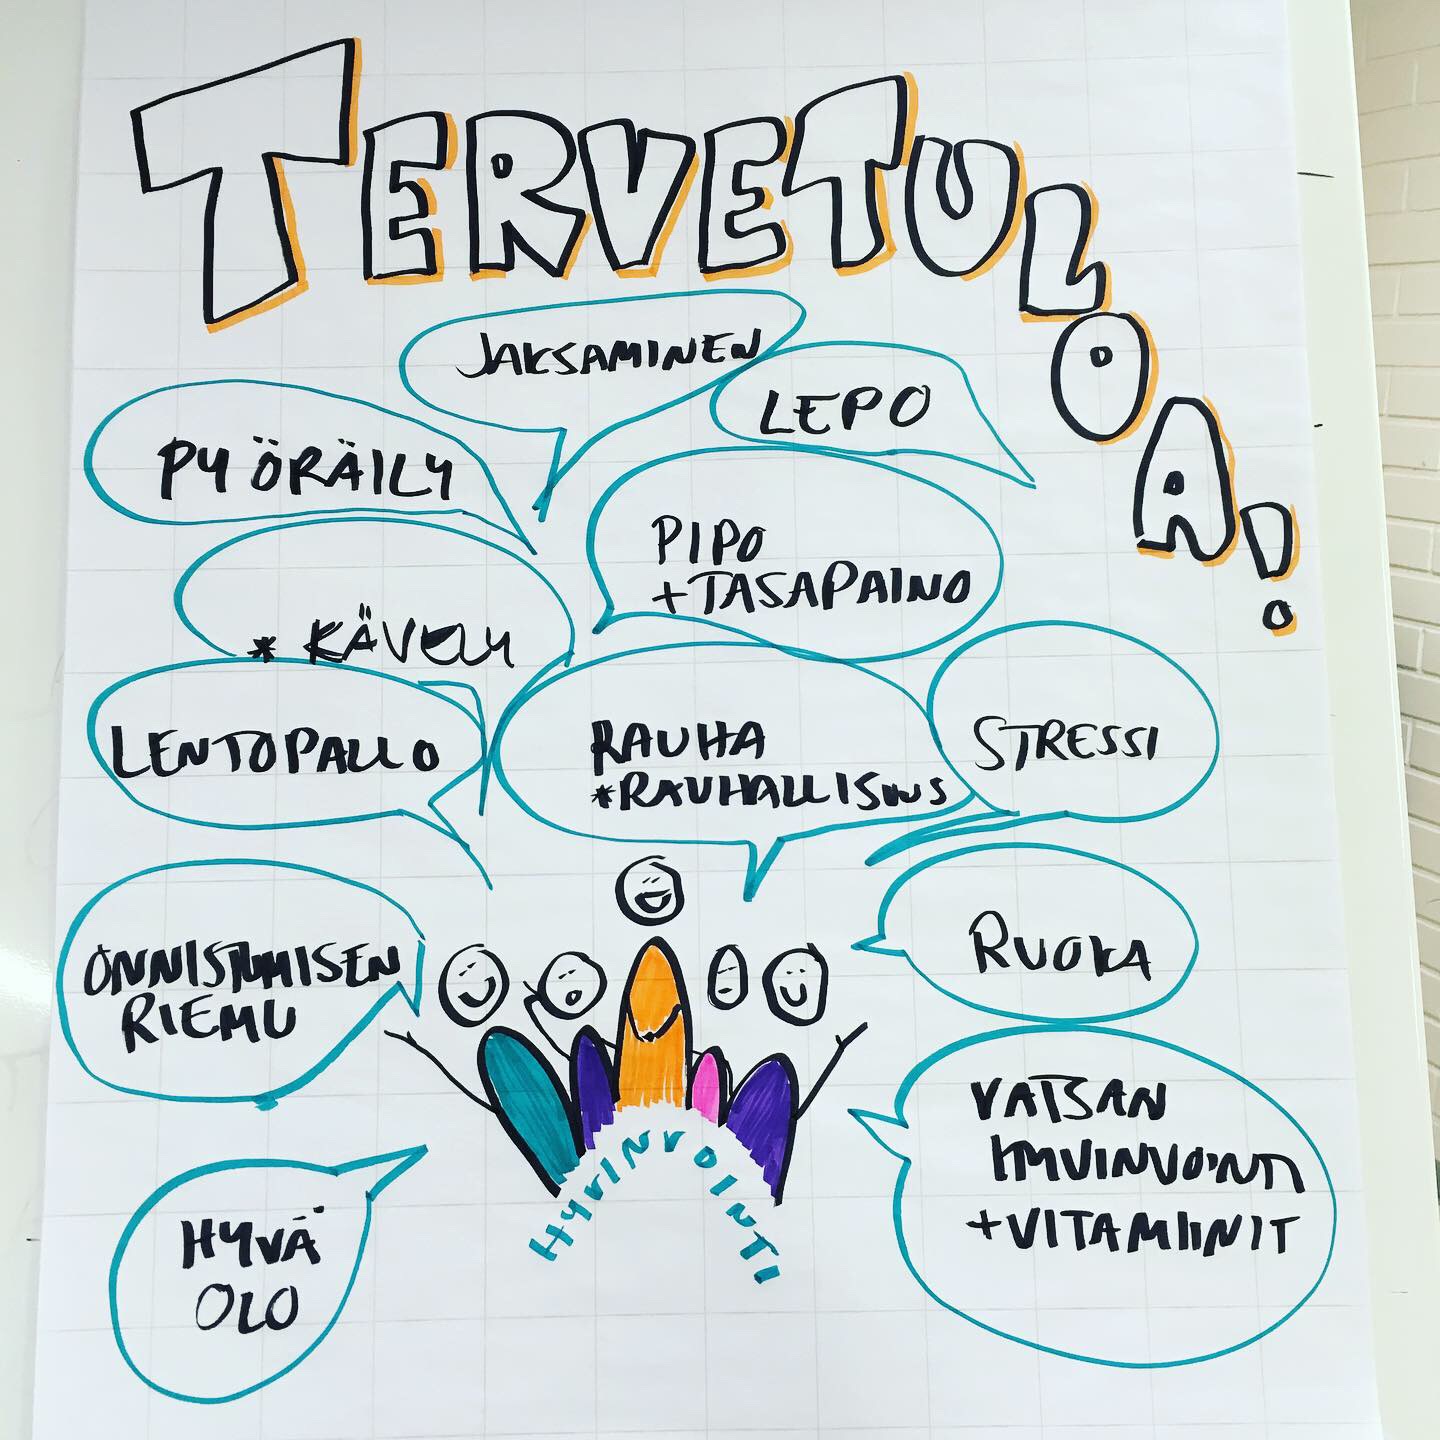 TERVETULOA!
JAKSAMINEN
LEPO
PYÖRÄILY
PIPO
+TASAPAINO
* KÄVELY
LENTOPALLO
RAUHA
*RAUHALLISUUS
STRESSI
ONNISTUMISEN
RIEMU
RUOKA
VATSAN
HYVINVOINTI
+VITAMIINIT
HYVÄ
OLO
HYVINVOINTI